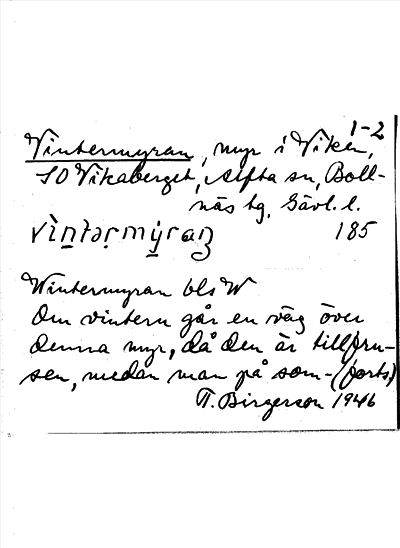 1-2
Vintermyran, myr i Viken,
SO Vikaberget, Alfta sn, Boll-
näs tg, Gävl. l.
vìntərmýran 185
Wintermyran bls W
Om vintern går en väg över
denna myr, då den är tillfru-
sen, medan man på som- (forts)
T. Birgerson 1946